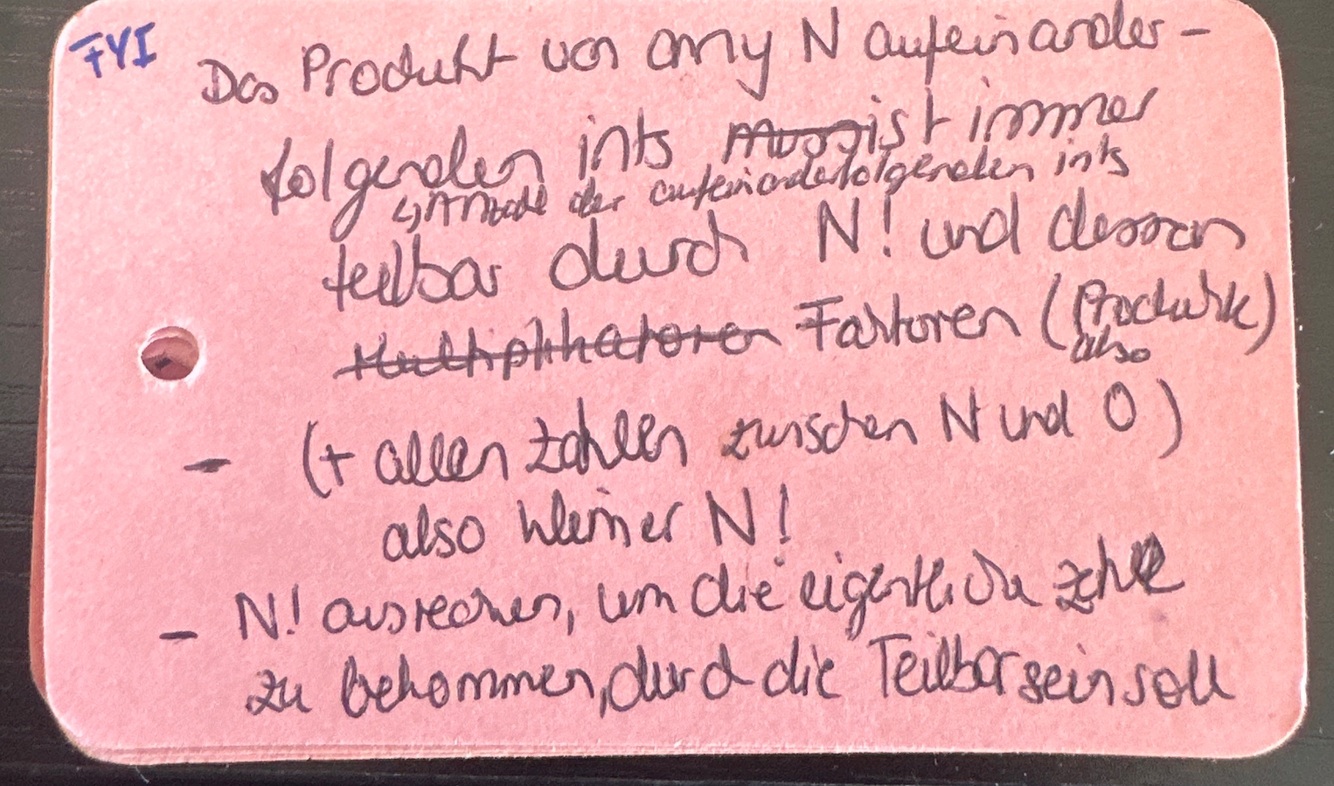 FYI
Das Produkt von any N aufeinander-
folgenden ints ist immer
↳ Anzahl der aufeinanderfolgenden ints
teilbar durch N! und dessen
Multiplikatoren Faktoren (Produkte)
also
- (+ allen Zahlen zwischen N und 0)
also kleiner N!
- N! ausrechen, um die eigentliche Zahl
zu bekommen, durch die Teilbar sein soll